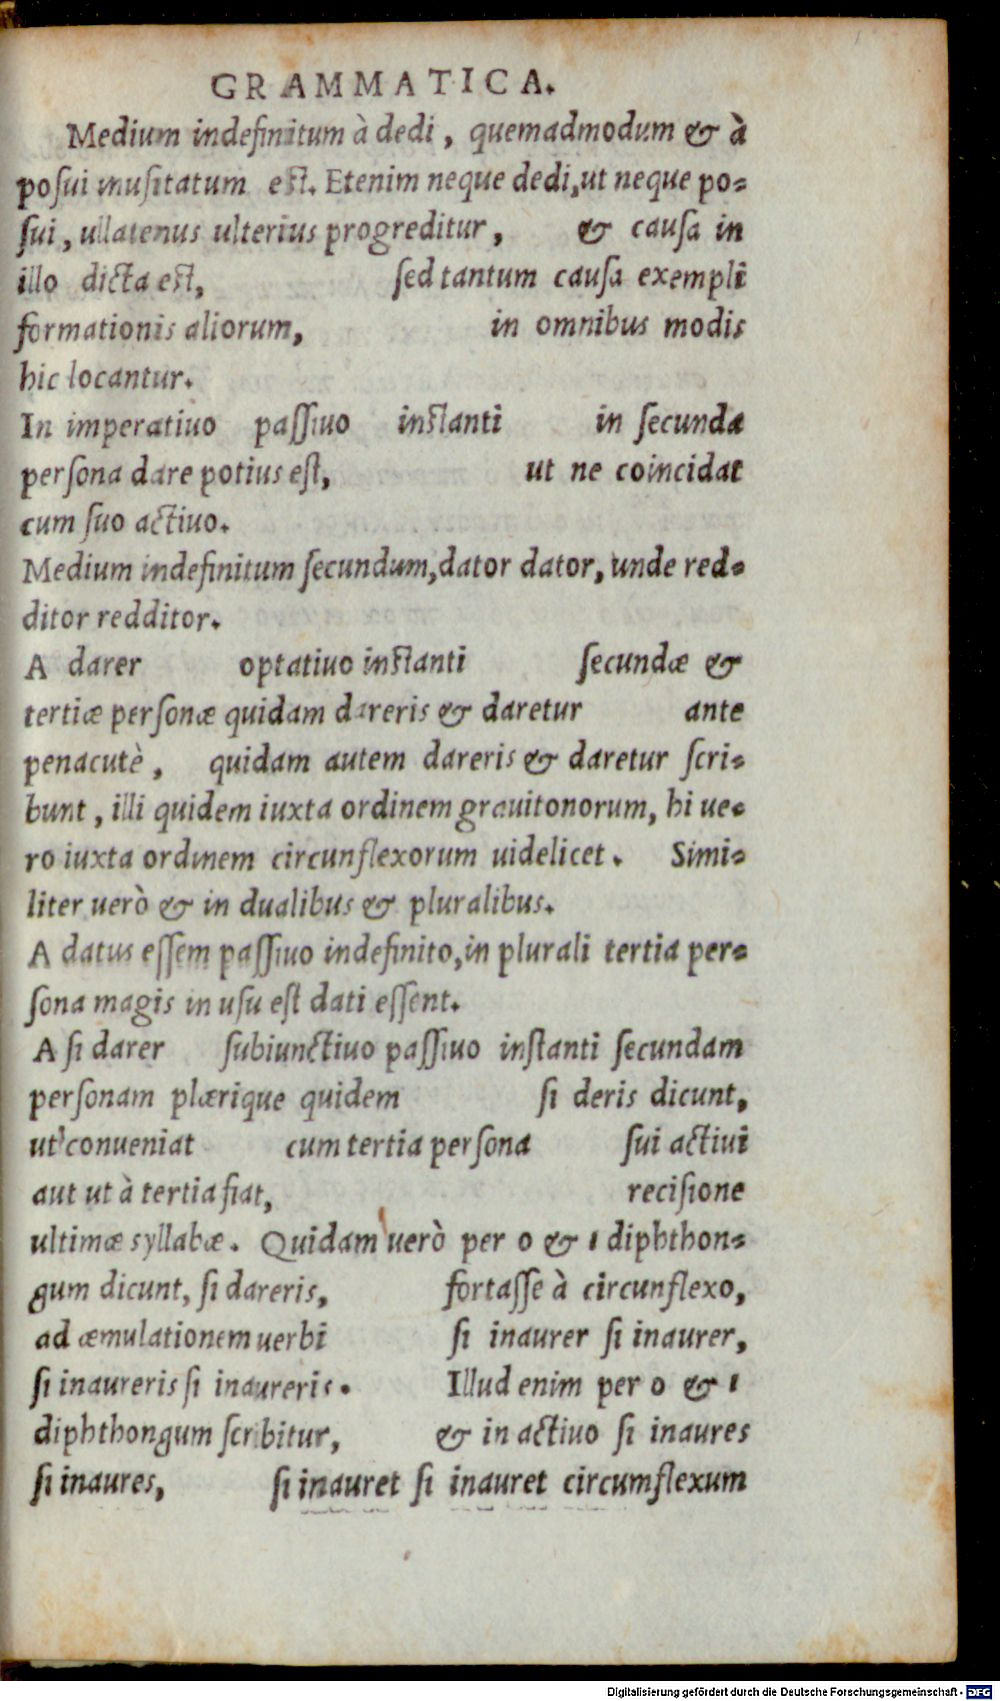 GRAMMATICA.
Medium indefinitum à dedi, quemadmodum & à
posui inusitatum est. Etenim neque dedi, ut neque po-
sui, ullatenus ulterius progreditur, & causa in
illo dicta est, sed tantum causa exempli
formationis aliorum, in omnibus modis
hic locantur.
In imperatiuo passiuo instanti in secunda
persona dare potius est, ut ne coincidat
cum suo actiuo.
Medium indefinitum secundum, dator dator, unde red-
ditor redditor.
A darer optatiuo instanti secundæ &
tertiæ personæ quidam dareris & daretur ante
penacutè, quidam autem dareris & daretur scri-
bunt, illi quidem iuxta ordinem grauitonorum, hi ue-
ro iuxta ordinem circunflexorum uidelicet. Simi-
liter uerò & in dualibus & pluralibus.
A datus essem passiuo indefinito, in plurali tertia per-
sona magis in usu est dati essent.
A si darer subiunctiuo passiuo instanti secundam
personam plærique quidem si deris dicunt,
ut conueniat cum tertia persona sui actiui
aut ut à tertia fiat, recisione
ultimæ syllabæ. Quidam uerò per o & ι diphthon-
gum dicunt, si dareris, fortasse à circunflexo,
ad æmulationem uerbi si inaurer si inaurer,
si inaureris si inaureris. Illud enim per o & ι
diphthongum scribitur, & in actiuo si inaures
si inaures, si inauret si inauret circumflexum
Digitalisierung gefördert durch die Deutsche Forschungsgemeinschaft - DFG